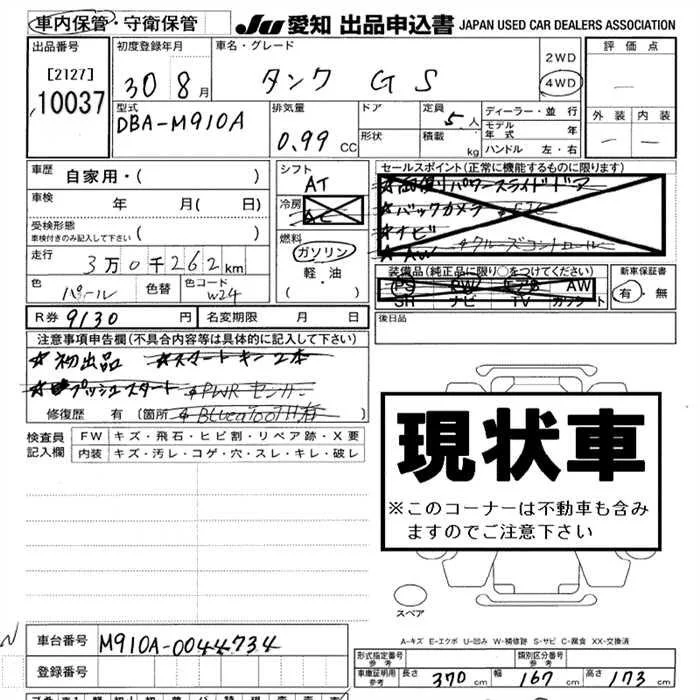 車内保管・守衛保管 JU 愛知 出品申込書 JAPAN USED CAR DEALERS ASSOCIATION
出品番号 初度登録年月 車名・グレード 2WD 評価点
[2127] 30 8月 タンク GS 4WD —
10037
型式 排気量 ドア 定員 ディーラー・並行 外装 内装
DBA-M910A 0.99 CC 5人 モデル年式 年 — —
形状 積載 kg ハンドル 左・右
車歴 自家用・( ) シフト AT セールスポイント(正常に機能するものに限ります)
車検 年 月( 日) 冷房 AC
★両側パワースライドドア
★バックカメラ
★ナビ
★AW ★クルーズコントロール
受検形態 車検付きのみ記入して下さい ( )
燃料 ガソリン 軽・油 ( )
走行 3万0千262km
装備品(純正品に限り○をつけてください) 新車保証書
PS PW エアB AW 有・無
SR ナビ TV カワシート
色 パール 色替 色コード W24
R券 9130円 名変期限 月 日 後日品
注意事項申告欄(不具合内容等は具体的に記入して下さい)
★初出品 ★スマートキー2本
★プッシュスタート ★PWRセンサー
修復歴 有 (箇所 ★Bluetooth有
検査員記入欄 FW キズ・飛石・ヒビ割・リペア跡・X要
内装 キズ・汚レ・コゲ・穴・スレ・キレ・破レ
現状車
※このコーナーは不動車も含み
ますのでご注意下さい
スペア
A-キズ E-エクボ U-凹み W-補修跡 S-サビ C-腐食 XX-交換済
N 車台番号 M910A-0044734
登録番号
形式指定番号 参考 類別区分番号 参考
車庫証明用 参考 長さ 370cm 幅 167cm 高さ 173cm